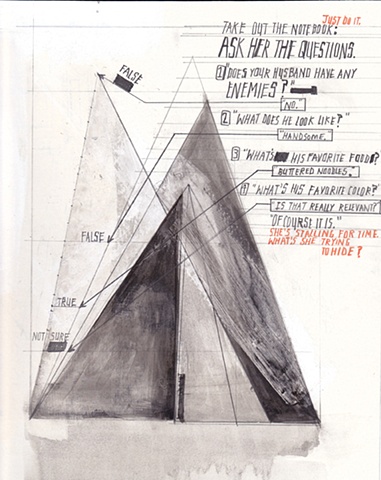 JUST DO IT.
TAKE OUT THE NOTEBOOK:
ASK HER THE QUESTIONS.
1 "DOES YOUR HUSBAND HAVE ANY
ENEMIES?"
"NO."
2 "WHAT DOES HE LOOK LIKE?"
"HANDSOME."
3 "WHAT'S HIS FAVORITE FOOD?
BUTTERED NOODLES."
4 "WHAT'S HIS FAVORITE COLOR?"
"IS THAT REALLY RELEVANT?"
"OF COURSE IT IS."
SHE'S STALLING FOR TIME.
WHAT'S SHE TRYING
TO HIDE?
FALSE
FALSE
TRUE
NOT SURE